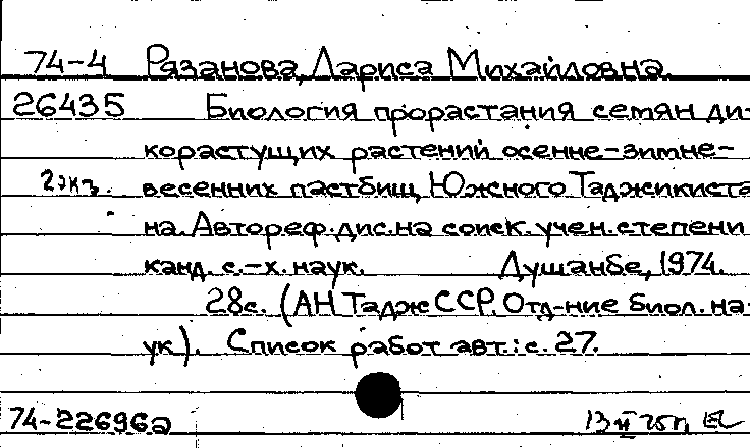 74-4 Рязанова, Лариса Михайловна.
26435 Биология прорастания семян ди-
корастущих растений осенне-зимне-
2экз. весенних пастбищ Южного Таджикиста-
на. Автореф. дис. на соиск. учен. степени
канд. с.-х. наук. Душанбе, 1974.
28с. (АН ТаджССР. Отд-ние биол. на-
ук). Список работ авт.: с. 27.
74-22696а